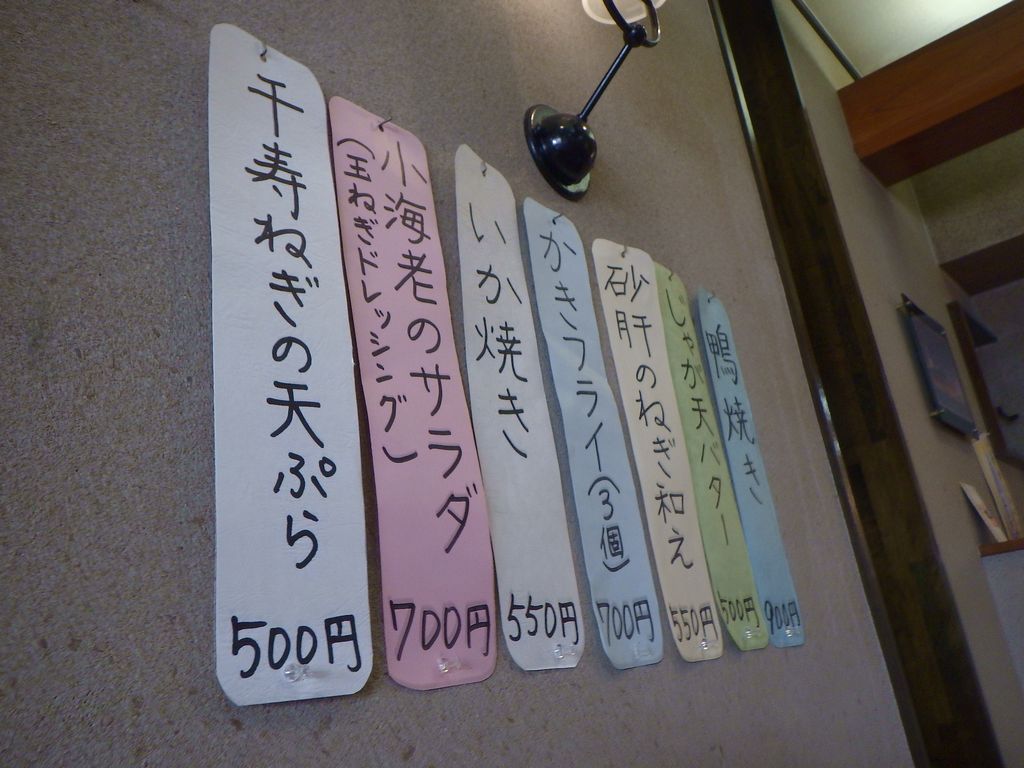 千寿ねぎの天ぷら
500円
小海老のサラダ
(玉ねぎドレッシング)
700円
いか焼き
550円
かきフライ(3個)
700円
砂肝のねぎ和え
550円
じゃが天バター
500円
鴨焼き
900円